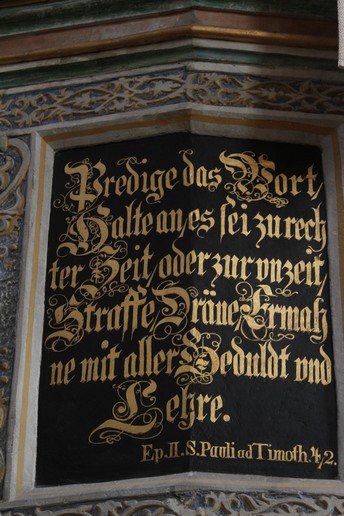 Predige das Wort,
Halte an, es sei zu rech
ter Zeit, oder zur vnzeit,
Straffe, Dräue, Ermah
ne mit aller Geduldt vnd
Lehre.
Ep. II. S. Pauli ad Timoth. 4/2.